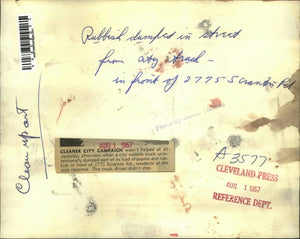 Rubbish dumped in street
from city truck -
in front of 2775 Scranton Rd
Clean up art
AUG 1 1957
CLEANER CITY CAMPAIGN wasn't helped at all
yesterday afternoon when a city rubbish truck unin-
tentionally dumped part of its load of papers and rub-
bish in front of 2775 Scranton Rd., residents of the
area reported. The truck driver didn't stop.
A3577
CLEVELAND PRESS
AUG 1 1957
REFERENCE DEPT.